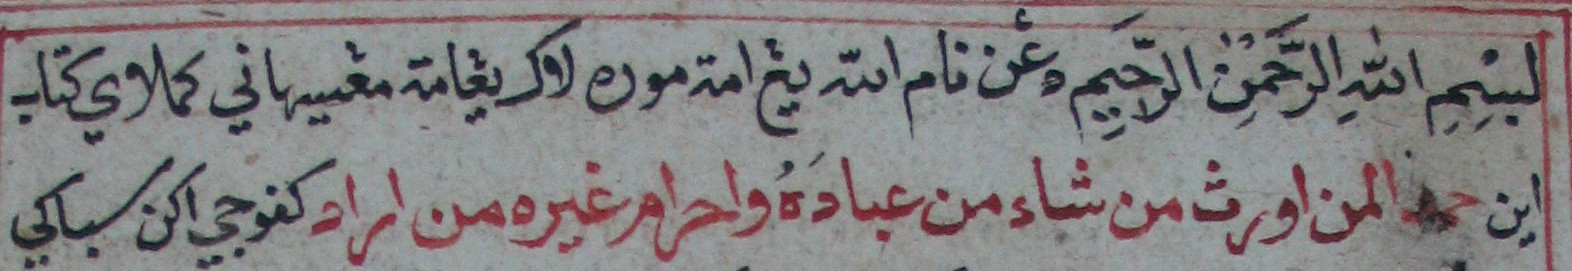 بِسْمِ اللّٰهِ الرَّحْمٰنِ الرَّحِيْمِ دغن نام الله يڠ امة موره لاݢ يڠامة مڠسيهاني كمولاءي كتاب
اين حمدا لمن اورث من شاء من عبادهُ واحرام غيره من اراد كفوجي اكن سباݢي